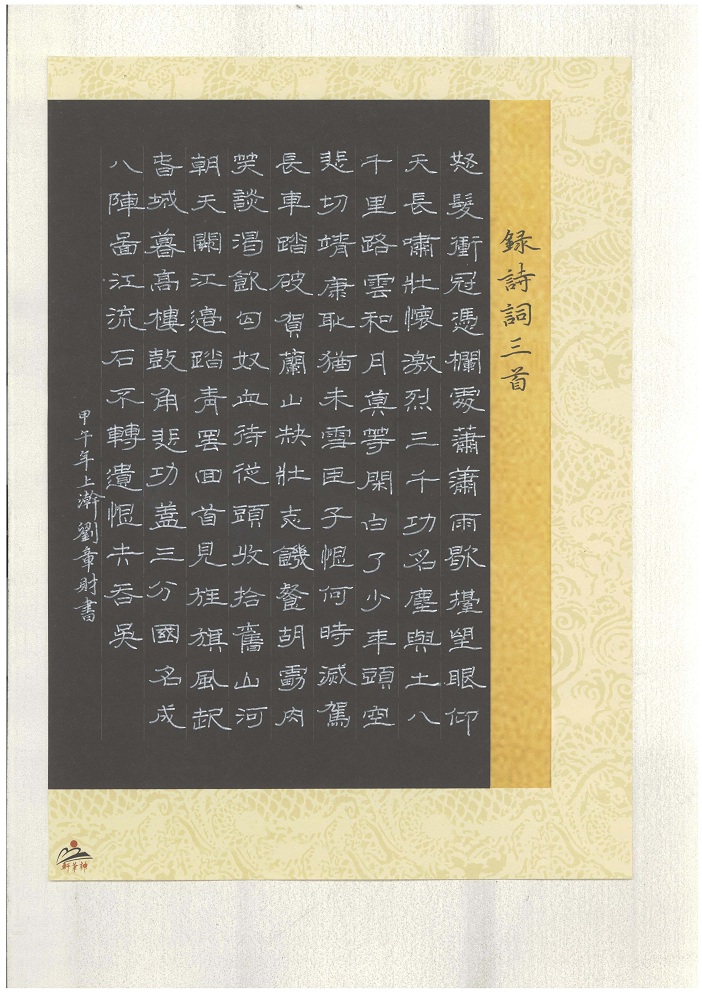 錄詩詞三首
怒髮衝冠憑欄處蕭瀟雨歇擡望眼仰
天長嘯壯懷激烈三千功名塵與土八
千里路雲和月莫等閑白了少年頭空
悲切靖康耻猶未雪臣子恨何時滅駕
長車踏破賀蘭山缺壯志饑餐胡虜肉
笑談渴飲匈奴血待從頭收拾舊山河
朝天闕江邊踏青罷回首見旌旗風起
春城暮高樓鼓角悲功蓋三分國名成
八陣圖江流石不轉遺恨失吞吳
甲午年上澣劉章財書
神筆軒